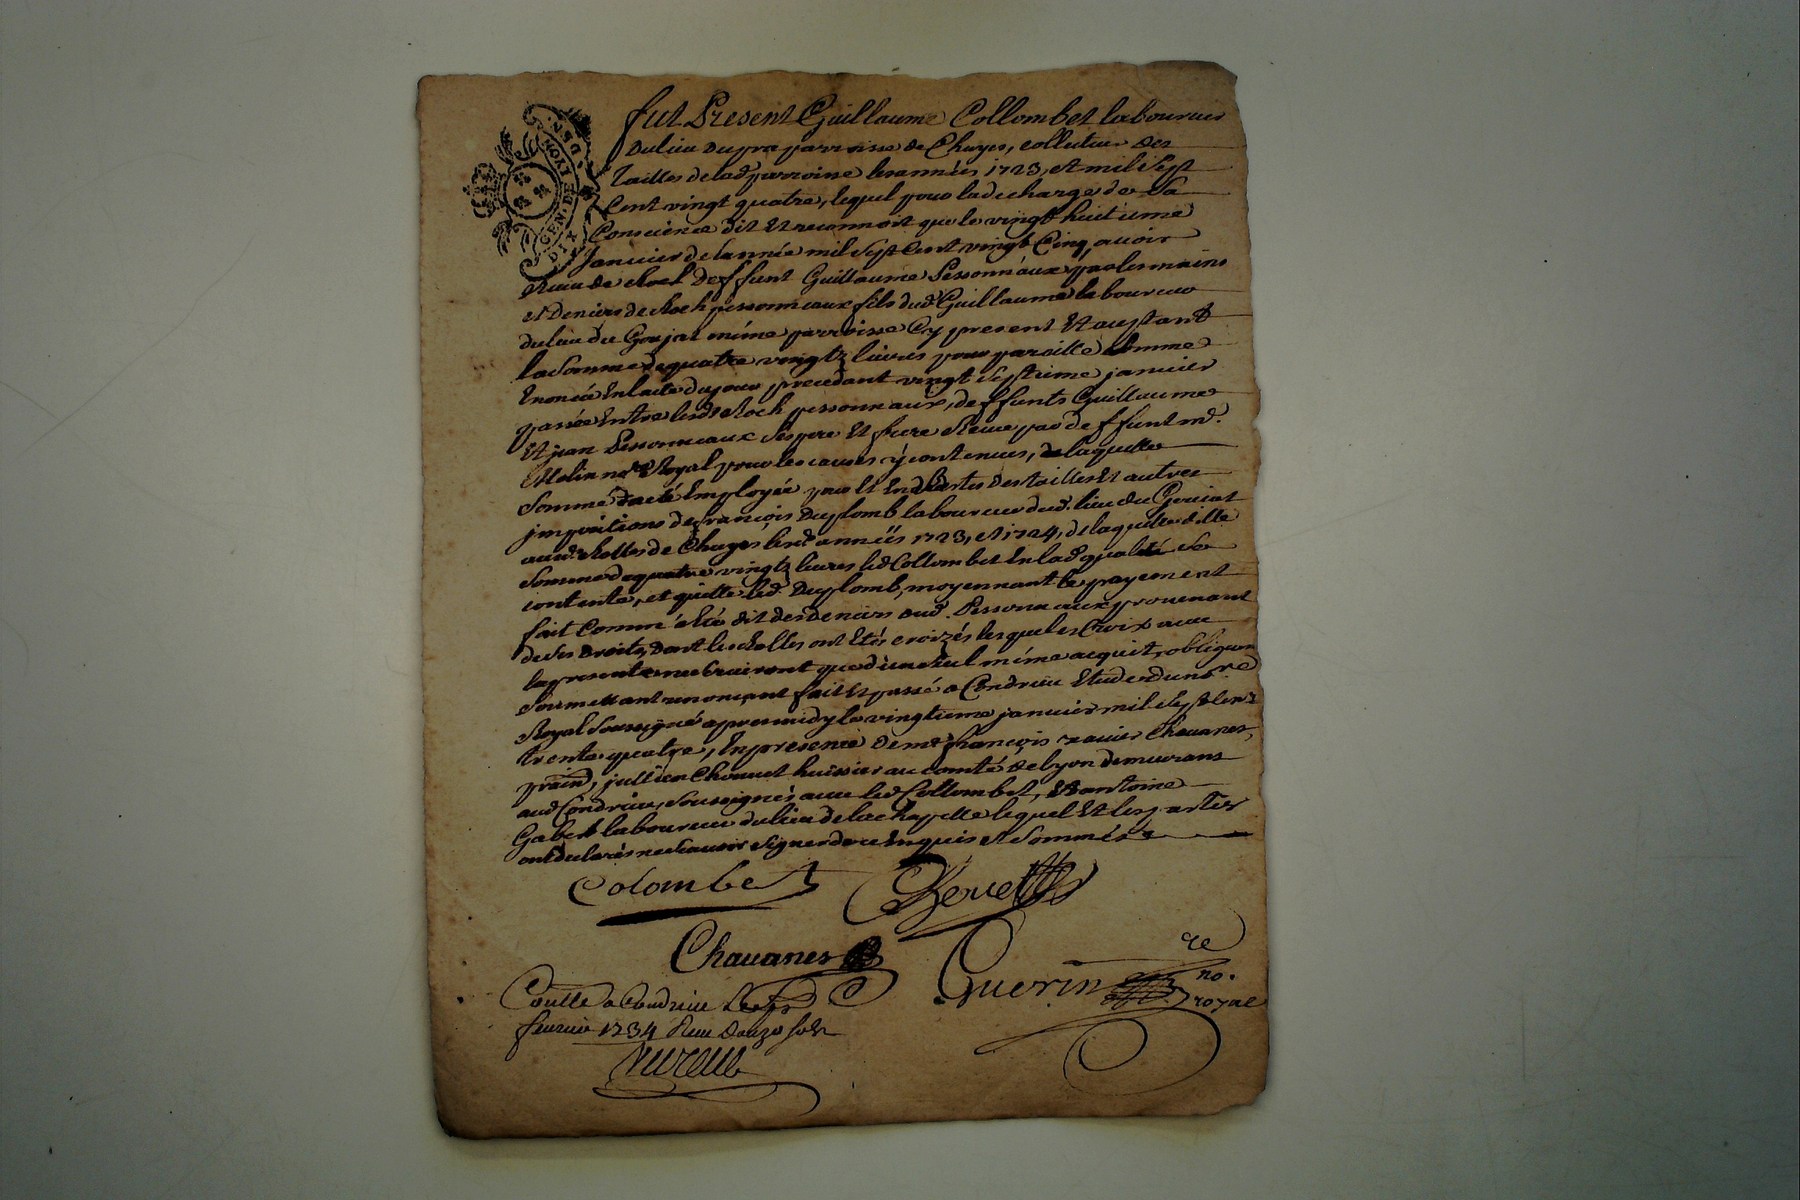 fut Present Guillaume Collombet laboureur
du lieu du pra parroisse de Chuyes, collecteur des
Tailles de lad parroisse les années 1723, et mil sept
Cent vingt quatre, lequel pour la decharge de sa
Conscience dit Et reconnoit que le vingt huitieme
Janvier de l'année mil sept Cent vingt Cinq, avoir
Receu de deffunt Guillaume Pessonneaux par les mains
et Deniers de Roch pessonneaux fils dud Guillaume laboureur
du lieu du Goujat méme parroisse Cy present Et acceptant
la Somme de quatre vingtz livres pour pareille Somme
Enoncée En l'acte du jour precedant vingt septieme janvier
passée Entre lesd Roch pessonneaux, deffunts Guillaume
Et jean Pessonneaux ses pere Et frere Receue par deffunt m.
not Royal pour les causes y contenues, de laquelle
Somme Employée des tailles Et autres
impositions de françois Duplomb laboureur dud. lieu du Goujat
aux Rolles de Chuyes lesd années 1723, et 1724, de laquelle dille
Somme de quatre vingtz livres led Collombet En lad qualité se
contente, et quitte led. Duplomb, moyennant le payement
fait Comme a Eté dit des deniers dud. Pessonneaux provenant
de ses droits, dont les Rolles ont Etés croizés lesquelles Croix avec
la presente ne serviront que d'un seul méme acquit, obligeant
Soumettant renonçant fait Et passé a Condrieu Etude du no.re
Royal Soussigné apres midy le vingtieme janvier mil Sept Cent
trente quatre, En presence de me françois xavier Chavanes,
jullien Chouvet huissier au comté de lyon demeurans
aud Condrieu, Soussignés avec led Collombet, Et antoine
Gabert laboureur du lieu de la chapelle lequel Et les parties
ont declarés ne sçavoir signer de ce Enquis et Sommés
Colombet
Chavanes
Guerin no.re royal
Coulle a Condrieu Le
fevrier 1734 Receu Douze sols